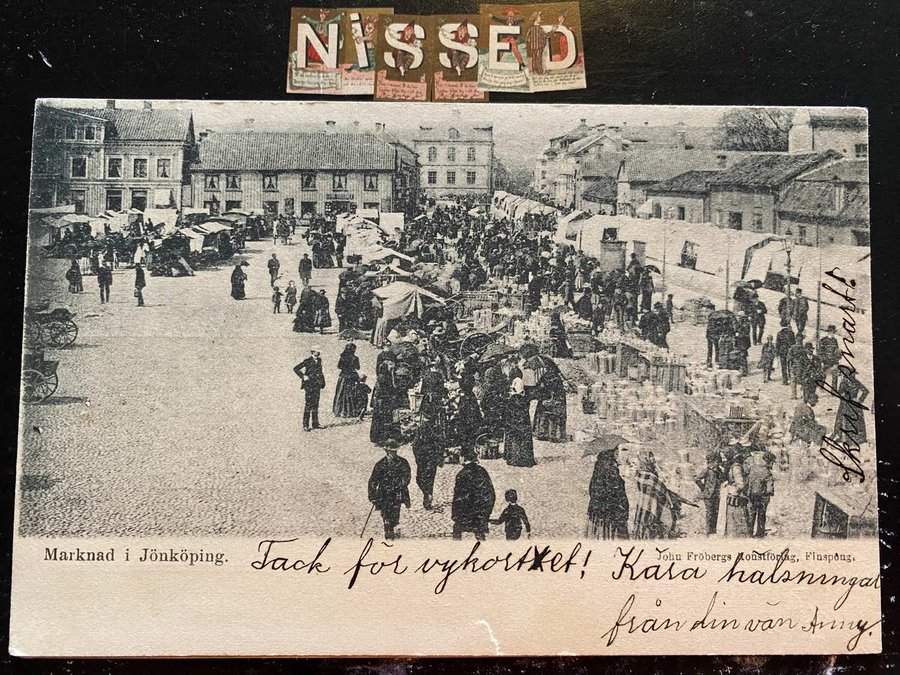 NiSSED
Marknad i Jönköping.
John Fröbergs Konstförlag, Finspong.
Tack för vykortet! Kära hälsningar
från din vän Anny.
Skrif snart!